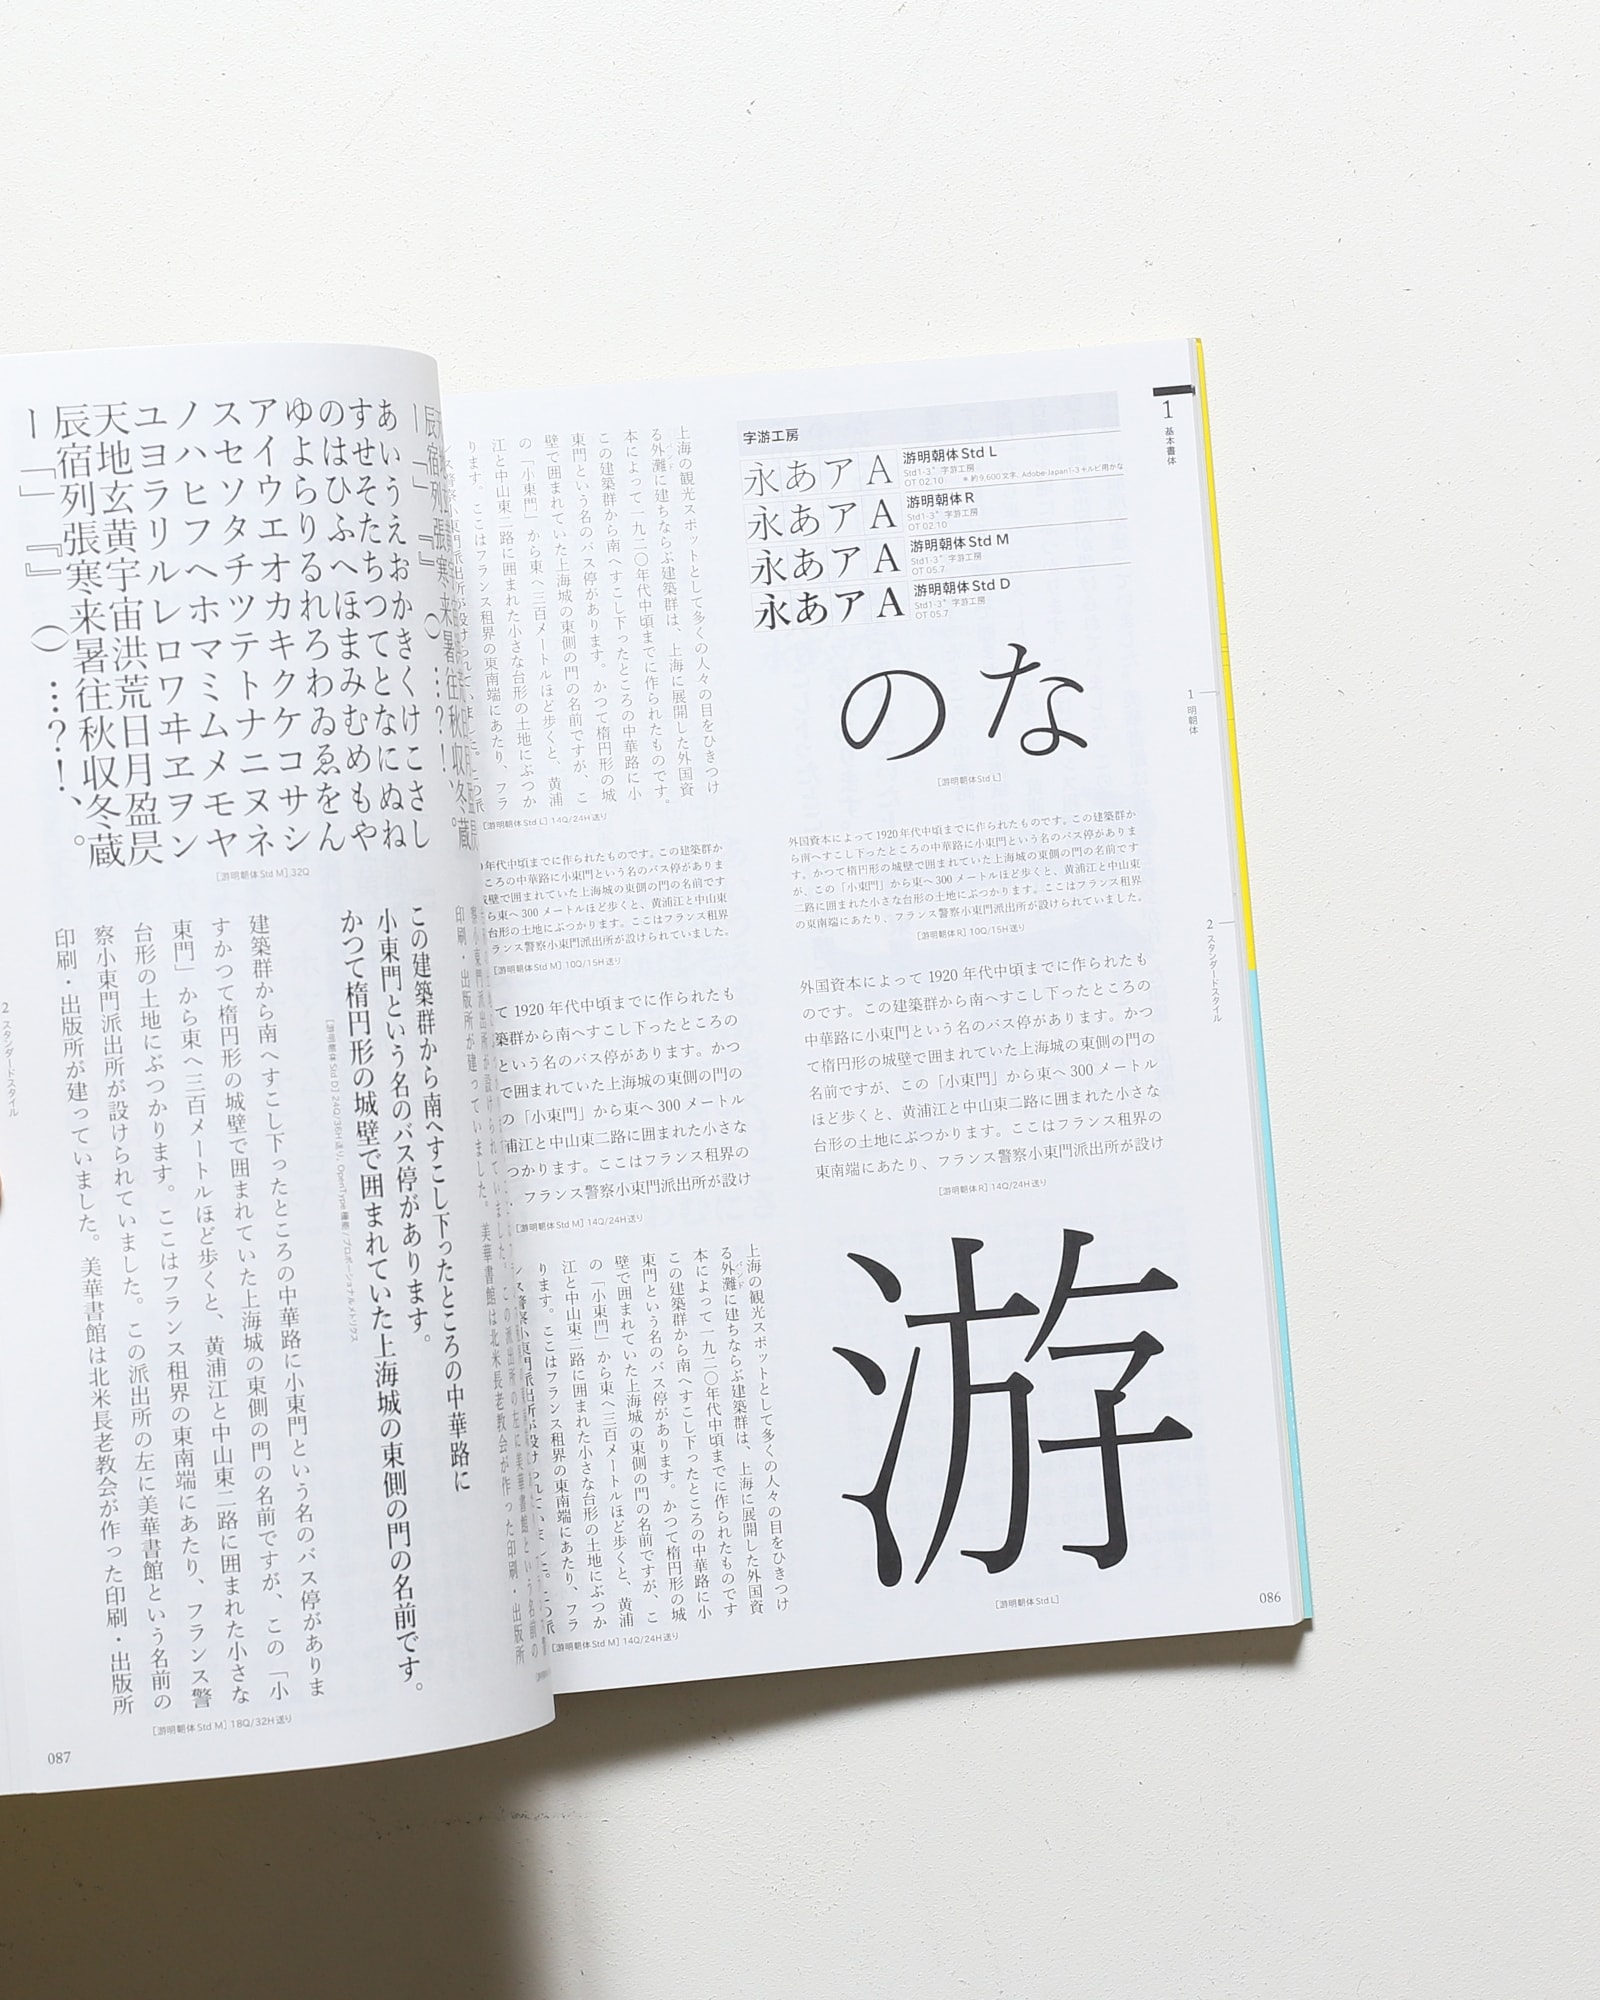 1 基本書体
1 明朝体
2 スタンダードスタイル
字游工房
永あアA 游明朝体 Std L
Std1-3* 字游工房
OT 02.10 ＊約9,600文字、Adobe-Japan1-3＋ルビ用かな
永あアA 游明朝体 R
Std1-3* 字游工房
OT 02.10
永あアA 游明朝体 Std M
Std1-3* 字游工房
OT 05.7
永あアA 游明朝体 Std D
Std1-3* 字游工房
OT 05.7
のな
[游明朝体 Std L]
外国資本によって1920年代中頃までに作られたものです。この建築群か
ら南へすこし下ったところの中華路に小東門という名のバス停がありま
す。かつて楕円形の城壁で囲まれていた上海城の東側の門の名前です
が、この「小東門」から東へ300メートルほど歩くと、黄浦江と中山東
二路に囲まれた小さな台形の土地にぶつかります。ここはフランス租界
の東南端にあたり、フランス警察小東門派出所が設けられていました。
[游明朝体 R] 10Q/15H送り
外国資本によって1920年代中頃までに作られたも
のです。この建築群から南へすこし下ったところの
中華路に小東門という名のバス停があります。かつ
て楕円形の城壁で囲まれていた上海城の東側の門の
名前ですが、この「小東門」から東へ300メートル
ほど歩くと、黄浦江と中山東二路に囲まれた小さな
台形の土地にぶつかります。ここはフランス租界の
東南端にあたり、フランス警察小東門派出所が設け
[游明朝体 R] 14Q/24H送り
游
[游明朝体 Std L]
086
上海の観光スポットとして多くの人々の目をひきつけ
る外灘に建ちならぶ建築群は、上海に展開した外国資
本によって一九二〇年代中頃までに作られたものです。
この建築群から南へすこし下ったところの中華路に小
東門という名のバス停があります。かつて楕円形の城
壁で囲まれていた上海城の東側の門の名前ですが、こ
の「小東門」から東へ三百メートルほど歩くと、黄浦
江と中山東二路に囲まれた小さな台形の土地にぶつか
ります。ここはフランス租界の東南端にあたり、フラ
ンス警察小東門派出所が設けられていました。この派
[游明朝体 Std L] 14Q/24H送り
年代中頃までに作られたものです。この建築群か
ころの中華路に小東門という名のバス停がありま
城壁で囲まれていた上海城の東側の門の名前です
ら東へ300メートルほど歩くと、黄浦江と中山東
台形の土地にぶつかります。ここはフランス租界
ランス警察小東門派出所が設けられていました。
[游明朝体 Std M] 10Q/15H送り
て1920年代中頃までに作られたも
築群から南へすこし下ったところの
という名のバス停があります。かつ
で囲まれていた上海城の東側の門の
の「小東門」から東へ300メートル
浦江と中山東二路に囲まれた小さな
つかります。ここはフランス租界の
フランス警察小東門派出所が設け
[游明朝体 Std M] 14Q/24H送り
上海の観光スポットとして多くの人々の目をひきつけ
る外灘に建ちならぶ建築群は、上海に展開した外国資
本によって一九二〇年代中頃までに作られたものです
この建築群から南へすこし下ったところの中華路に小
東門という名のバス停があります。かつて楕円形の城
壁で囲まれていた上海城の東側の門の名前ですが、こ
の「小東門」から東へ三百メートルほど歩くと、黄浦
江と中山東二路に囲まれた小さな台形の土地にぶつか
ります。ここはフランス租界の東南端にあたり、フラ
ンス警察小東門派出所が設けられていました。この派
[游明朝体 Std M] 14Q/24H送り
あいうえおかきくけこさし
すせそたちつてとなにぬね
のはひふへほまみむめもや
ゆよらりるれろわゐゑをん
アイウエオカキクケコサシ
スセソタチツテトナニヌネ
ノハヒフヘホマミムメモヤ
ユヨラリルレロワヰヱヲン
天地玄黄宇宙洪荒日月盈昃
辰宿列張寒来暑往秋収冬蔵
ー「」『』（）…？！、。
[游明朝体 Std M] 32Q
この建築群から南へすこし下ったところの中華路に
小東門という名のバス停があります。
かつて楕円形の城壁で囲まれていた上海城の東側の門の名前です。
[游明朝体 Std D] 24Q/36H送り、OpenType機能／プロポーショナルメトリクス
建築群から南へすこし下ったところの中華路に小東門という名のバス停がありま
すかつて楕円形の城壁で囲まれていた上海城の東側の門の名前ですが、この「小
東門」から東へ三百メートルほど歩くと、黄浦江と中山東二路に囲まれた小さな
台形の土地にぶつかります。ここはフランス租界の東南端にあたり、フランス警
察小東門派出所が設けられていました。この派出所の左に美華書館という名前の
印刷・出版所が建っていました。美華書館は北米長老教会が作った印刷・出版所
[游明朝体 Std M] 18Q/32H送り
2 スタンダードスタイル
087